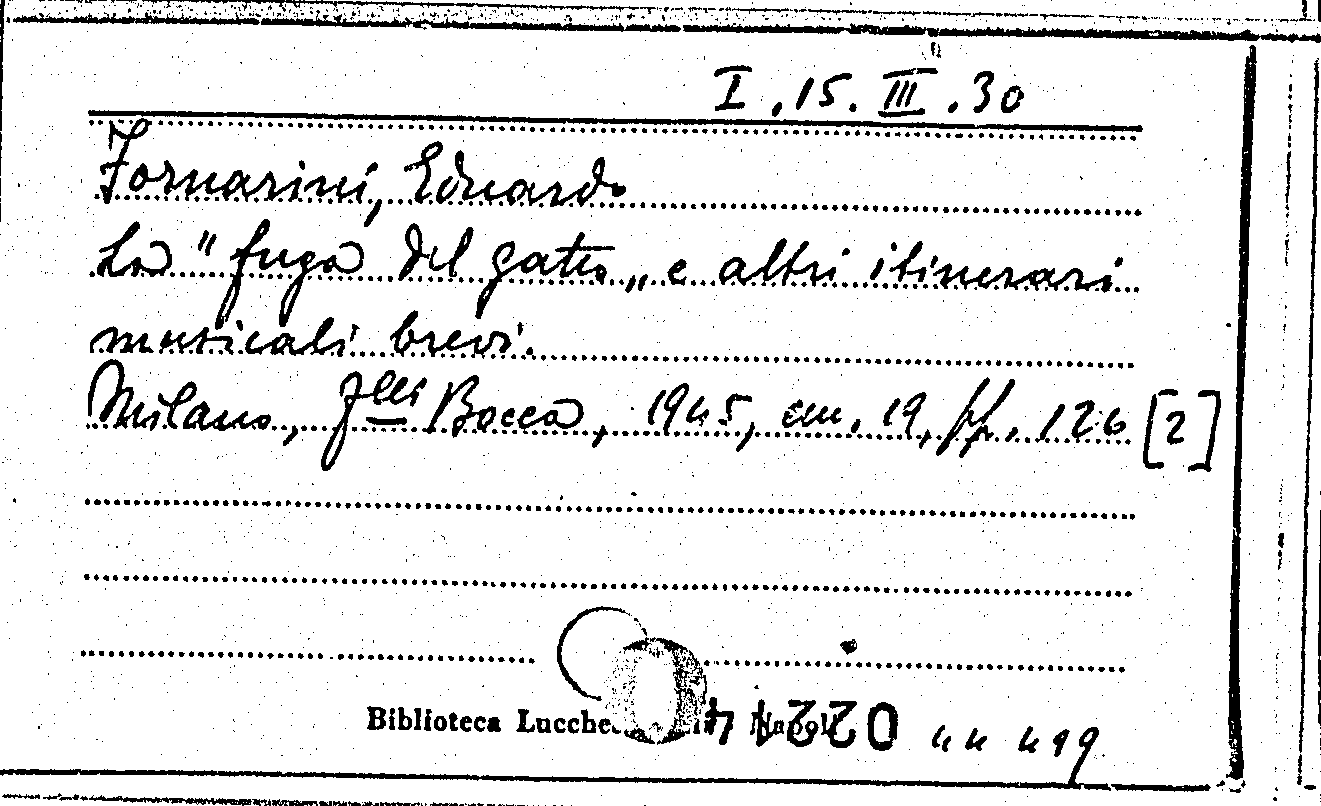 I.15.III.30
Fornarini, Eduardo
La "fuga del gatto„ e altri itinerari
musicali brevi.
Milano, F.lli Bocca, 1945, cm. 19, pp. 126 [2]
Biblioteca Napoli 44 499